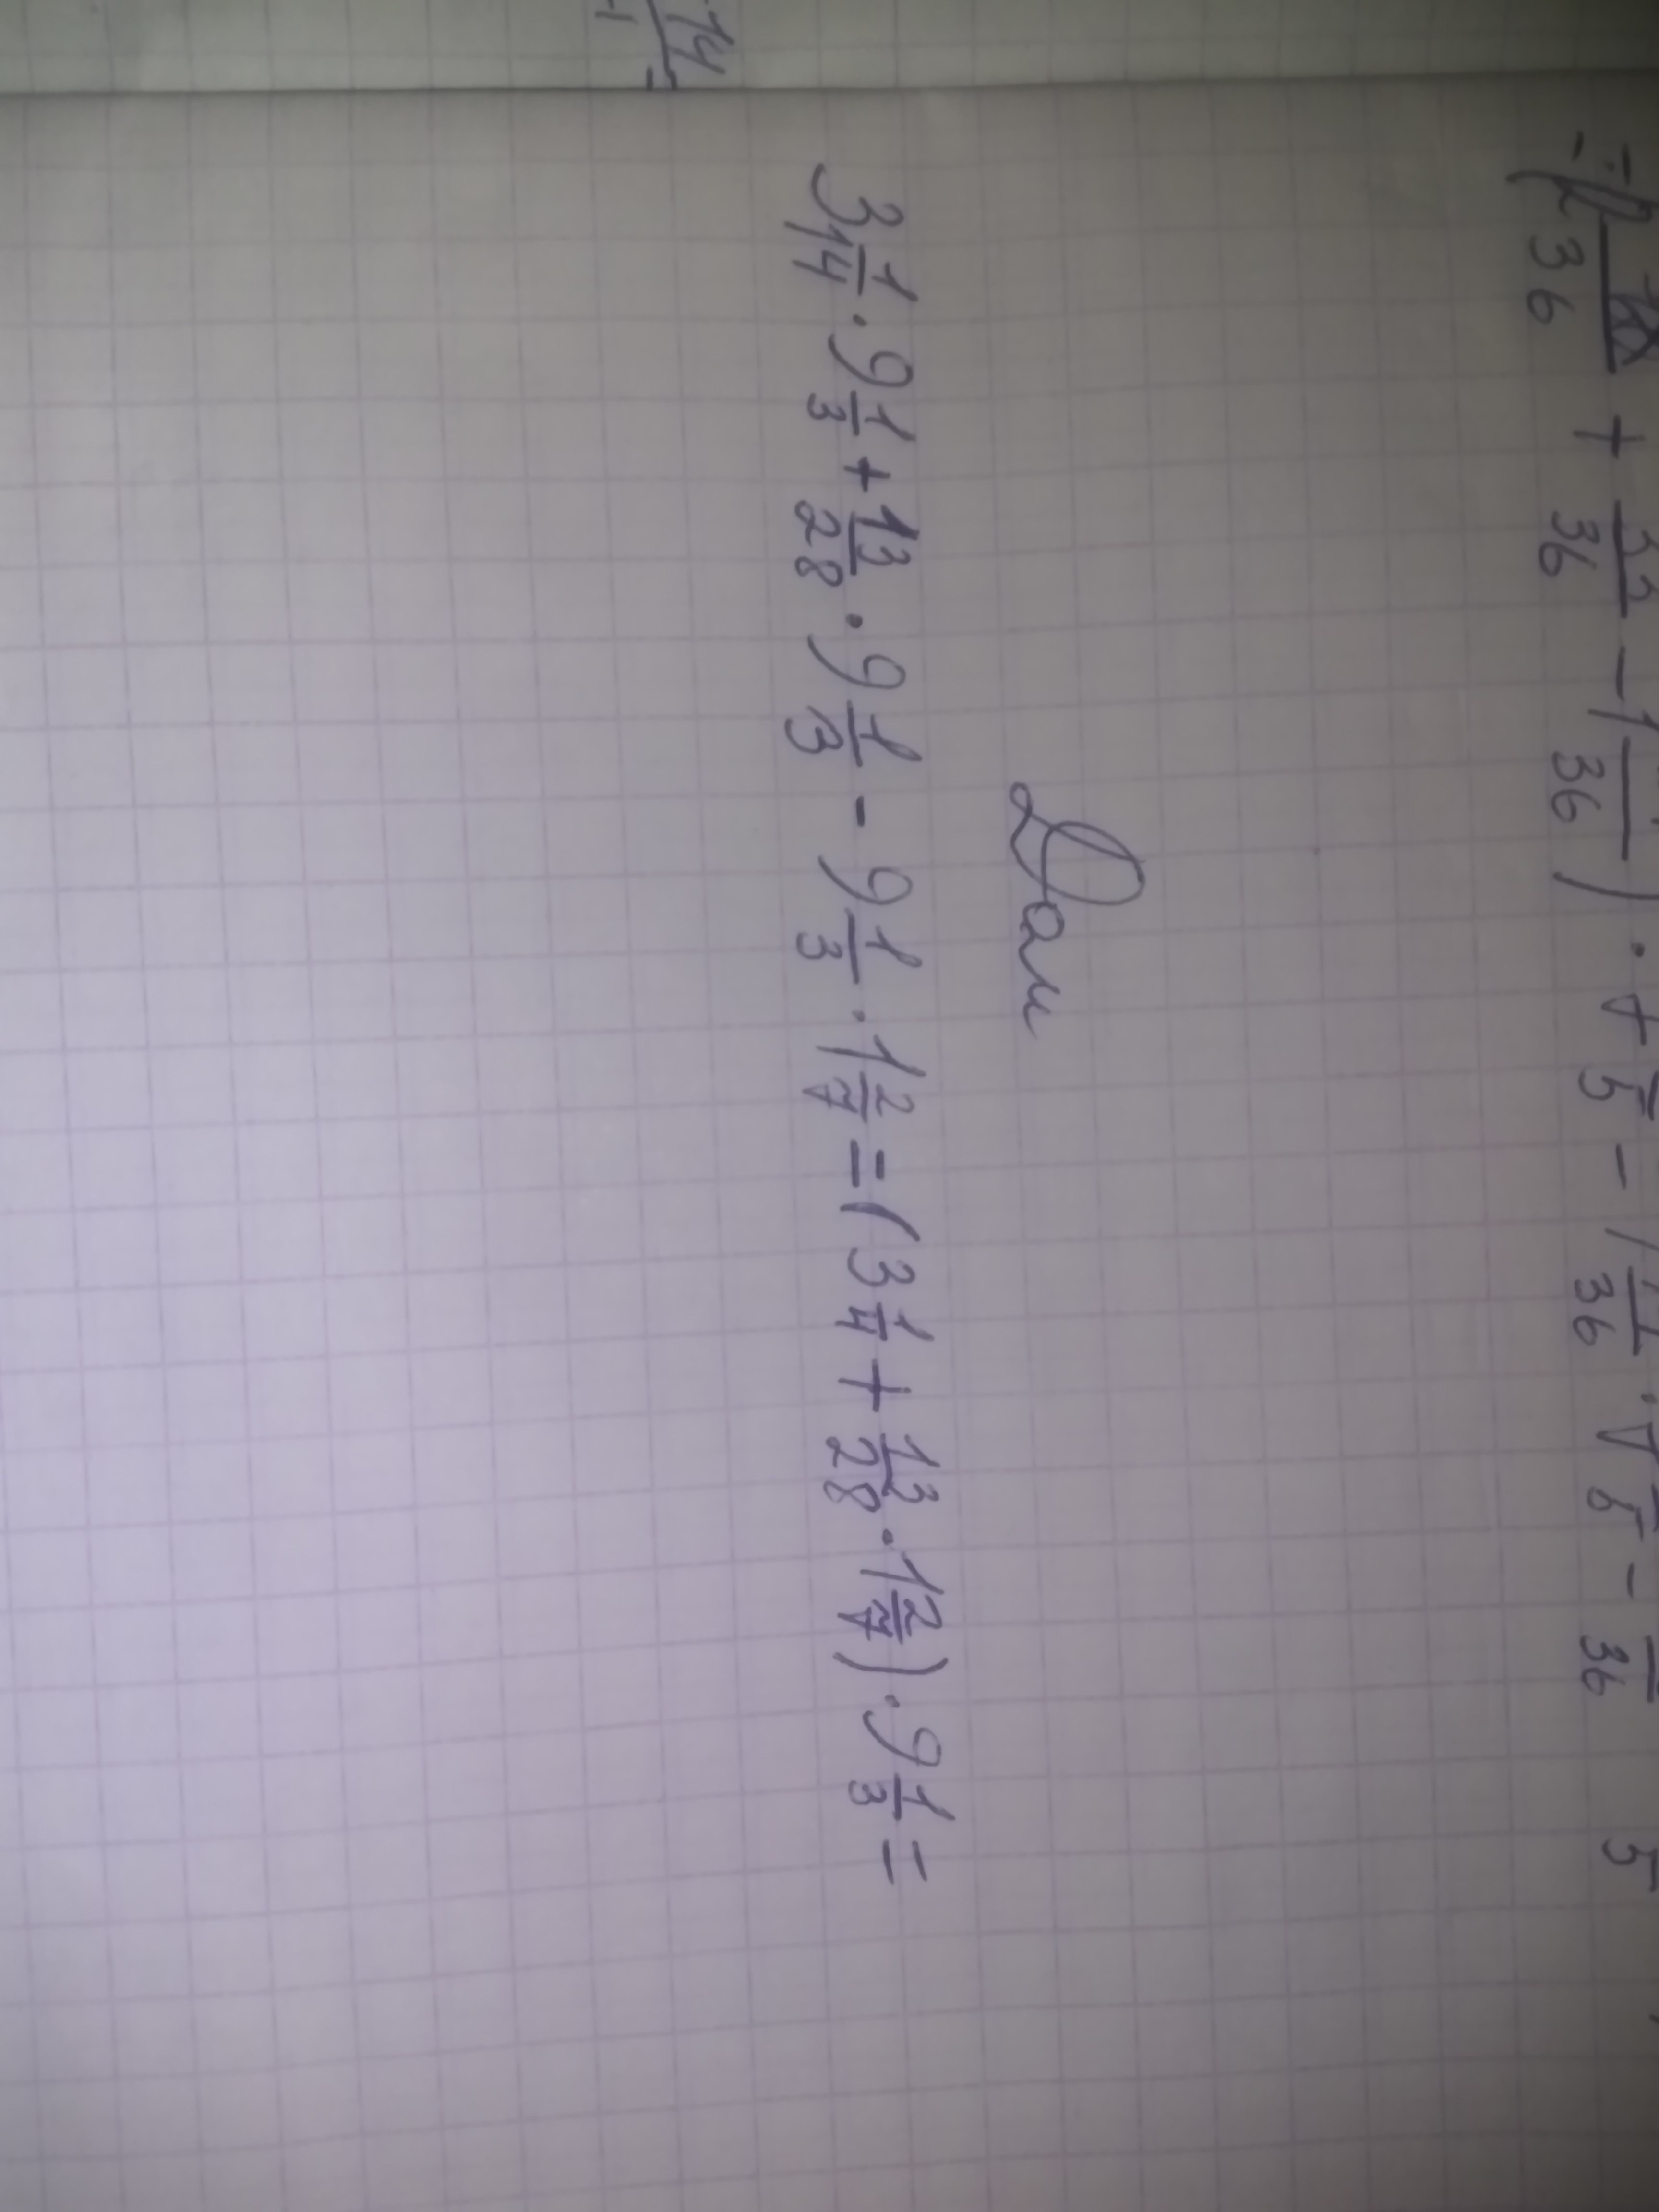 36 + 32/36 - 1 /36) · 5 - 1 1/36 · 5 - 36 5
Дом
3 1/4 · 9 1/3 + 13/28 · 9 1/3 - 9 1/3 · 1 2/7 = (3 1/4 + 13/28 · 1 2/7) · 9 1/3 =
14